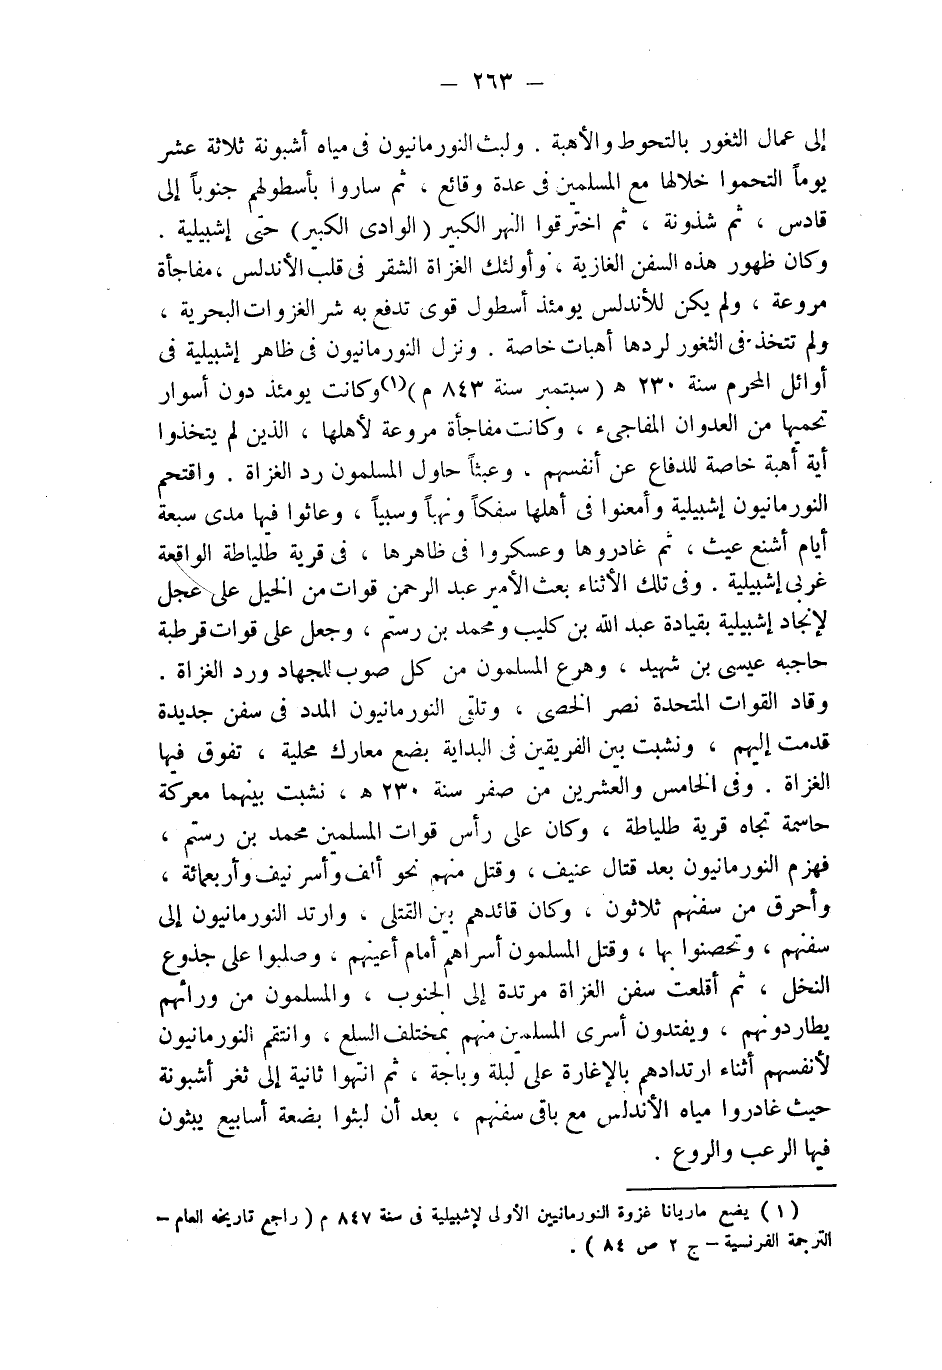 — ٢٦٣ —
إلى عمال الثغور بالتحوط والأهبة . ولبث النورمانيون فى مياه أشبونة ثلاثة عشر
يوماً التحموا خلالها مع المسلمين فى عدة وقائع ، ثم ساروا بأسطولهم جنوباً إلى
قادس ، ثم شذونة ، ثم اخترقوا النهر الكبير ( الوادى الكبير ) حتى إشبيلية .
وكان ظهور هذه السفن الغازية ، وأولئك الغزاة الشقر فى قلب الأندلس ، مفاجأة
مروعة ، ولم يكن للأندلس يومئذ أسطول قوى تدفع به شر الغزوات البحرية ،
ولم تتخذ فى الثغور لردها أهبات خاصة . ونزل النورمانيون فى ظاهر إشبيلية فى
أوائل المحرم سنة ٢٣٠ ه ( سبتمبر سنة ٨٤٣ م )(١) وكانت يومئذ دون أسوار
تحميها من العدوان المفاجىء ، وكانت مفاجأة مروعة لأهلها ، الذين لم يتخذوا
أية أهبة خاصة للدفاع عن أنفسهم . وعبثاً حاول المسلمون رد الغزاة . واقتحم
النورمانيون إشبيلية وأمعنوا فى أهلها سفكاً ونهباً وسبياً ، وعاثوا فيها مدى سبعة
أيام أشنع عيث ، ثم غادروها وعسكروا فى ظاهرها ، فى قرية طلياطة الواقعة
غربى إشبيلية . وفى تلك الأثناء بعث الأمير عبد الرحمن قوات من الخيل على عجل
لإنجاد إشبيلية بقيادة عبد الله بن كليب ومحمد بن رستم ، وجعل على قوات قرطبة
حاجبه عيسى بن شهيد ، وهرع المسلمون من كل صوب للجهاد ورد الغزاة .
وقاد القوات المتحدة نصر الخصى ، وتلقى النورمانيون المدد فى سفن جديدة
قدمت إليهم ، ونشبت بين الفريقين فى البداية بضع معارك محلية ، تفوق فيها
الغزاة . وفى الخامس والعشرين من صفر سنة ٢٣٠ ه ، نشبت بينهما معركة
حاسمة تجاه قرية طلياطة ، وكان على رأس قوات المسلمين محمد بن رستم ،
فهزم النورمانيون بعد قتال عنيف ، وقتل منهم نحو ألف وأسر نيف وأربعمائة ،
وأحرق من سفنهم ثلاثون ، وكان قائدهم بين القتلى ، وارتد النورمانيون إلى
سفنهم ، وتحصنوا بها ، وقتل المسلمون أسراهم أمام أعينهم ، وصلبوا على جذوع
النخل ، ثم أقلعت سفن الغزاة مرتدة إلى الجنوب ، والمسلمون من ورائهم
يطاردونهم ، ويفتدون أسرى المسلمين منهم بمختلف السلع ، وانتقم النورمانيون
لأنفسهم أثناء ارتدادهم بالإغارة على لبلة وباجة ، ثم انتهوا ثانية إلى ثغر أشبونة
حيث غادروا مياه الأندلس مع باقى سفنهم ، بعد أن لبثوا بضعة أسابيع يبثون
فيها الرعب والروع .
( ١ ) يضع ماريانا غزوة النورمانيين الأولى لإشبيلية فى سنة ٨٤٧ م ( راجع تاريخه العام –
الترجمة الفرنسية – ج ٢ ص ٨٤ ) .